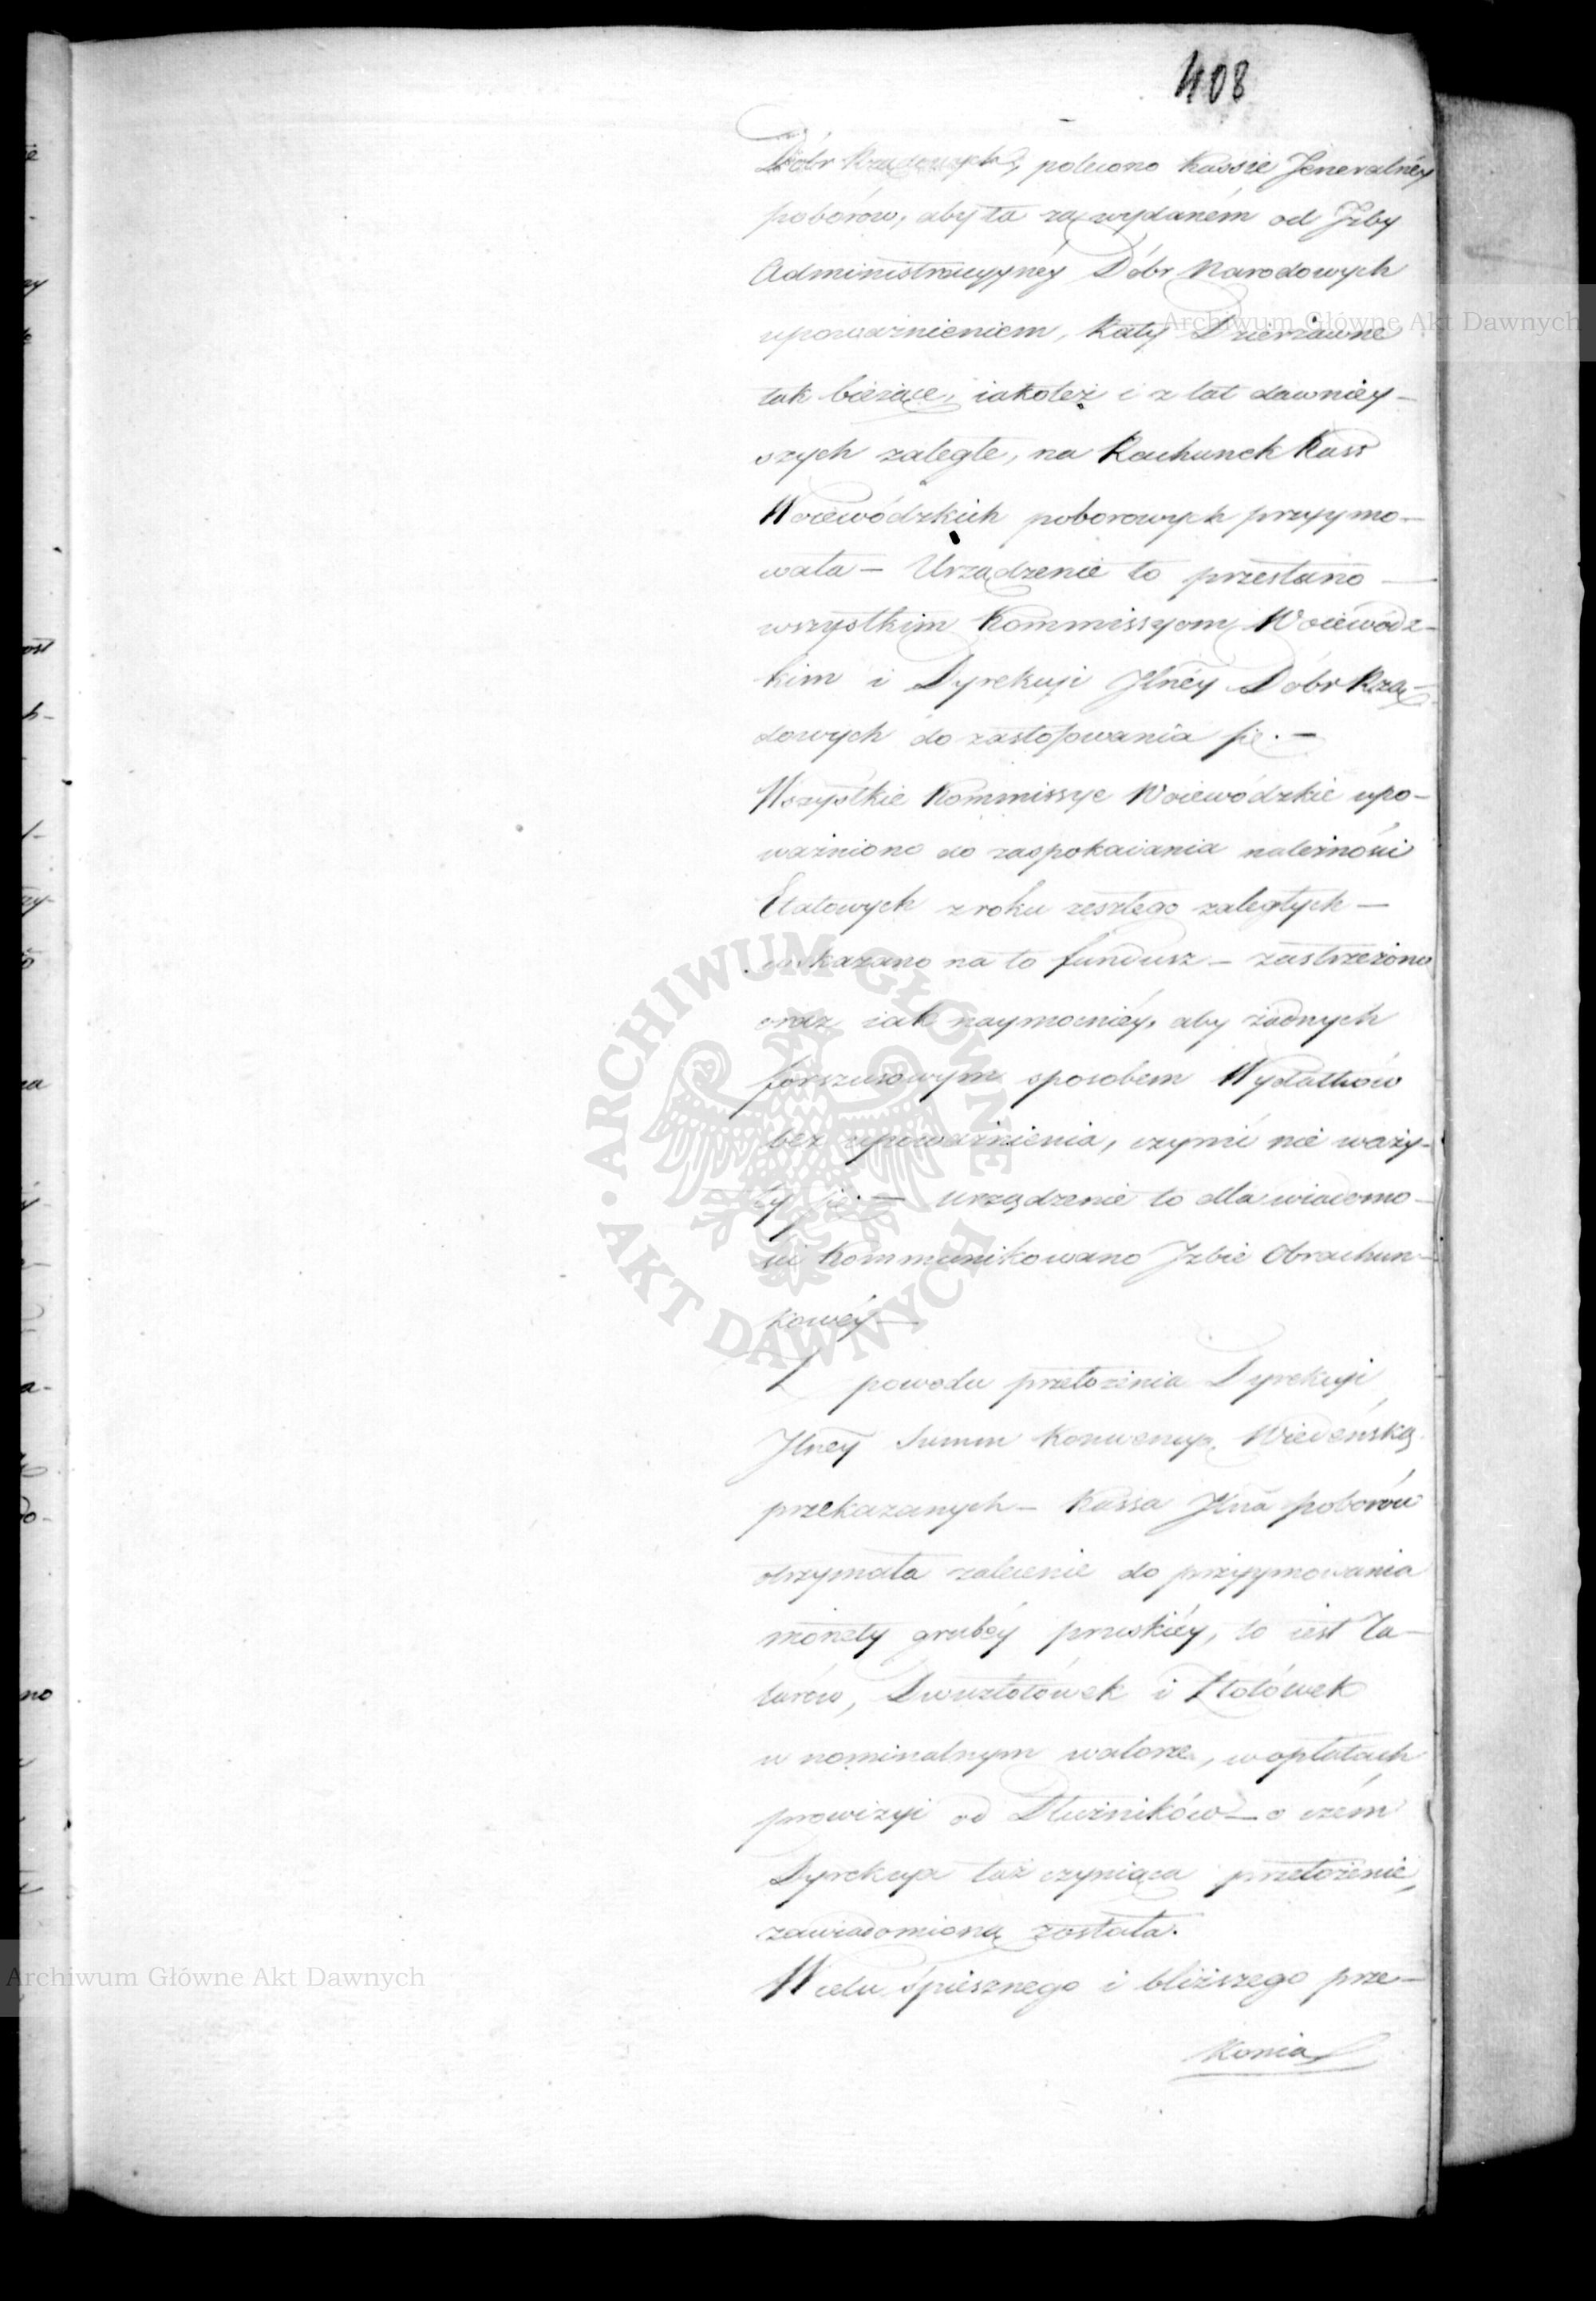 408
Dóbr Rządowych, polecono Kassie Jeneralnéy
poborów, aby ta za wydaném od Jzby
Administracyynéy Dóbr Narodowych
upoważnieniem, Raty Dzierżawne
tak bieżące, iakoteż i z lat dawniey-
szych zaległe, na Rachunek Kass
Woiewódzkich poborowych przyymo-
wała – Urządzenie to przesłano –
wszystkim Kommissyom Woiewódz-
kim i Dyrekcyi Jlnéy Dóbr Rzą-
dowych do zastosowania się. –
Wszystkie Kommissye Woiewódzkie upo-
ważniono do zaspokaiania należności
Etatowych z roku zeszłego zaległych –
wskazano na to fundusz – zastrzeżono
oraz iak naymocniéy, aby żadnych
forszusowym sposobem Wydatków
bez upoważnienia, czynić nie waży-
ły się. – urządzenie to dla wiadomo-
ści Kommunikowano Jzbie Obrachun-
kowéy –
Z powodu przełożenia Dyrekcyi
Jlnéy Summ Konwencyą Wiedeńską
przekazanych – Kassa Jlna poborów
otrzymała zalecenie do przyymowania
monety grubéy pruskiéy, to iest Ta-
larów, Dwuzłotówek i Złotówek
w nominalnym walorze, w opłatach
prowizyi od Dłużników – o czém
Dyrekcya taż czyniąca przełożenie,
zawiadomioną została.
W celu śpiesznego i bliższego prze-
konia
Archiwum Główne Akt Dawnych
Archiwum Główne Akt Dawnych
ARCHIWUM GŁÓWNE
AKT DAWNYCH